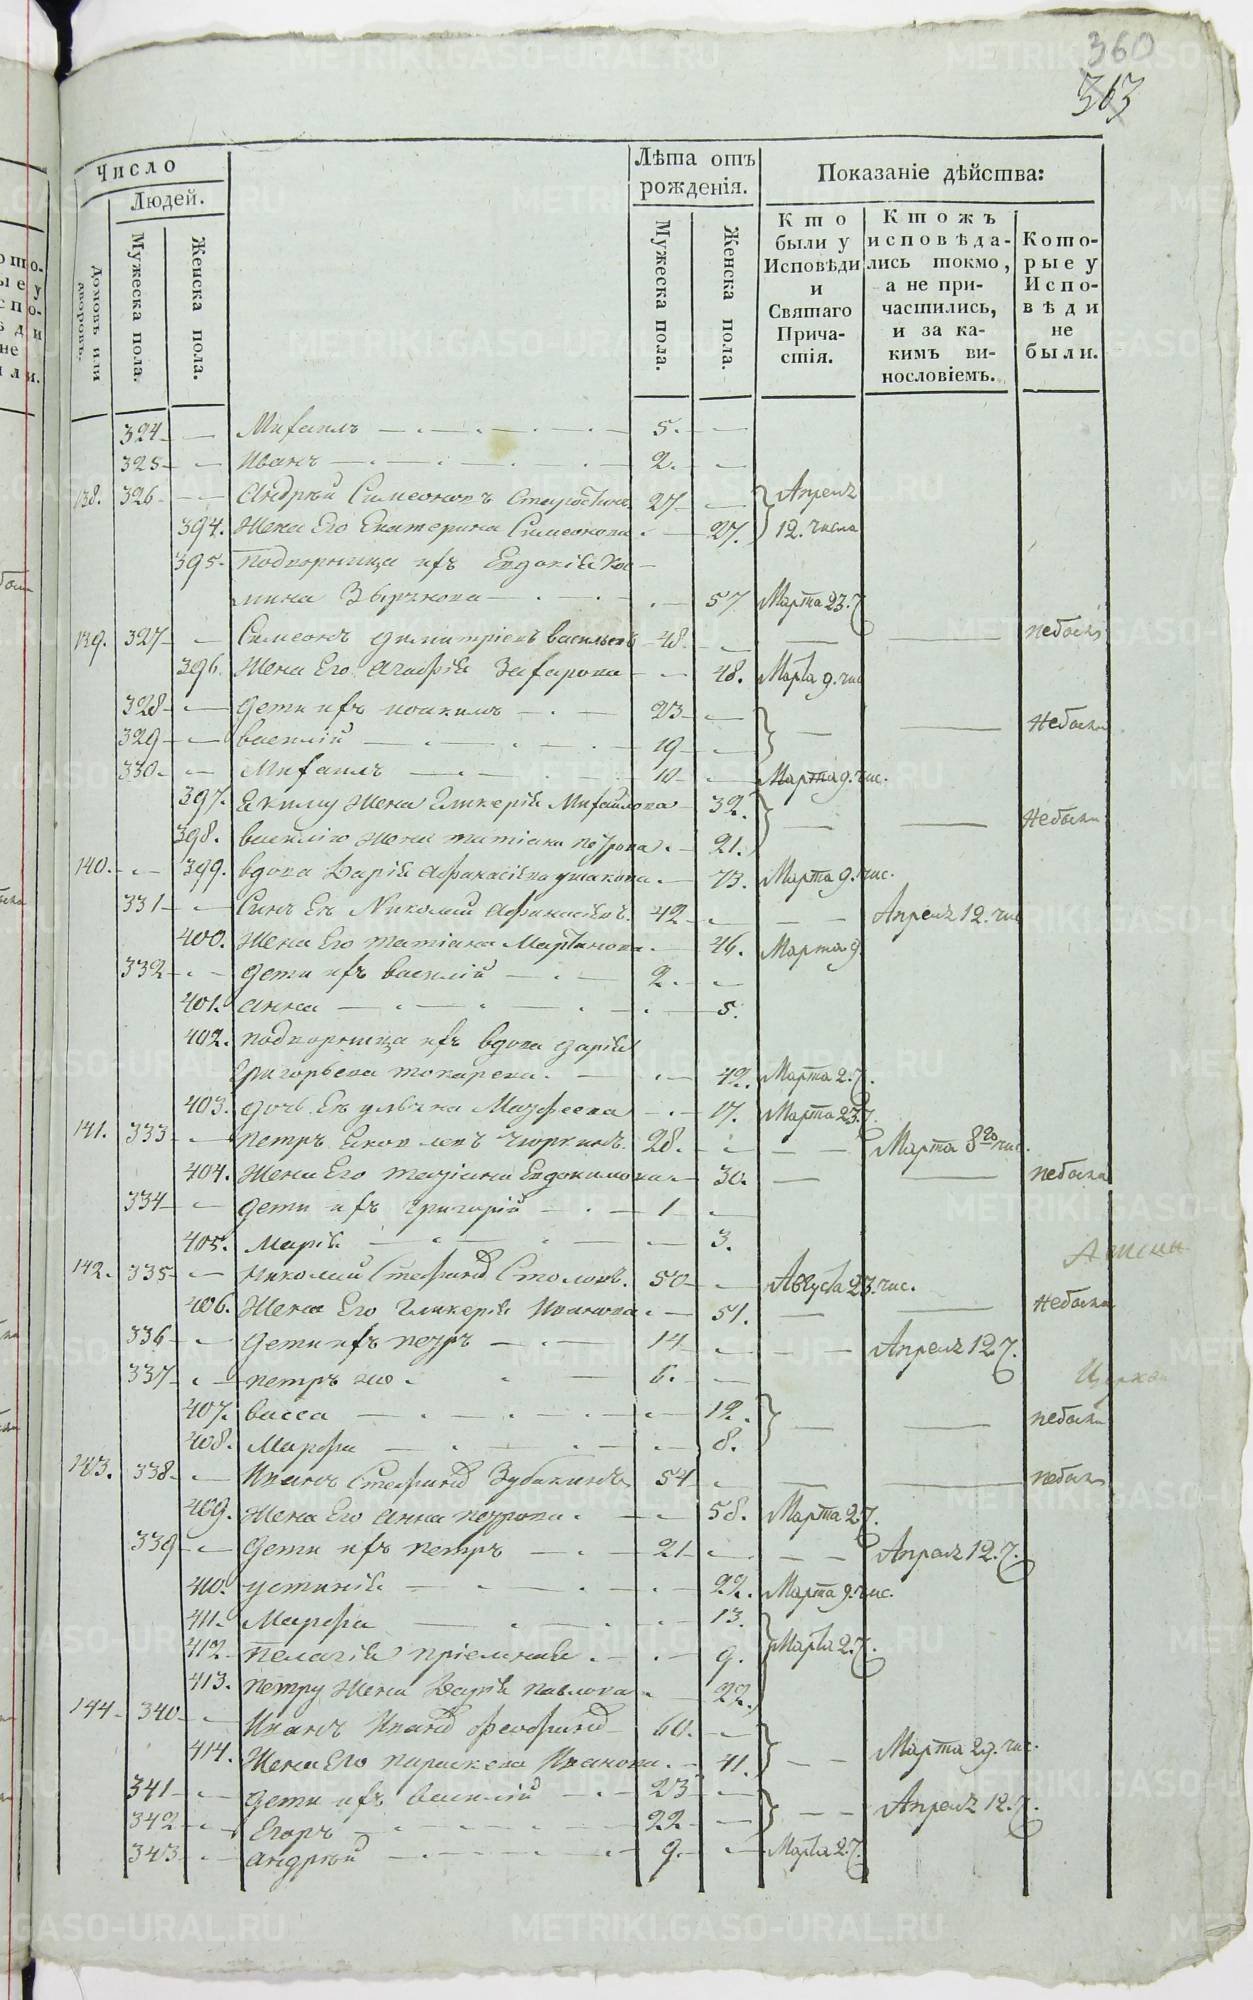 360
363
Число
Людей.
Лѣта отъ рожденія.
Показаніе дѣйства:
Домовъ или дворовъ.
Мужеска пола.
Женска пола.
Мужеска пола.
Женска пола.
Кто были у Исповѣди и Святаго Причастія.
Ктожъ исповѣдались токмо, а не причастились, и за какимъ винословіемъ.
Которые у Исповѣди не были.
324 Михаилъ 5.
325 Иванъ 2.
138. 326 Андрѣй Симеоновъ 27 Апреля
394. Жена Его Екатерина Симеонова 27. 12. числа
395. Подворница ихъ Евдокія
мина 57 Марта 23.
139. 327 Симеонъ Димитріевъ Васильевъ 48 небылъ
396. Жена Его Агафія Захарова 48. Марта 9. чис
328 Дети ихъ Иоакимъ 23 Небыли
329 Василій 19
330 Михаилъ 10 Марта 9. чис.
397. Екиму Жена Гликерія Михайлова 32. Небыли
398. Василію Жена Татіана Петрова 21.
140. 399. Вдова Дарія Афанасіева Ушакова 73. Марта 9. чис.
331 Сынъ Ея Николай Афанасіевъ. 42 Апреля 12. чис
400. Жена Его Татіана Мартинова 46. Марта 9.
332 Дети ихъ Василій 2.
401. Анна 5.
402. Подворница ихъ вдова Дарія
Григорьева Токарева. 42. Марта 27.
403. Дочь Ея 17. Марта 23.
141. 333 Петръ 28. Марта 8го чис.
404. Жена Его Татіана Евдокимова 30. небыла
334 Дети ихъ Григорій 1
405. Марія 3.
142. 335 Николай 50 Августа 23. чис.
406. Жена Его Гликерія Иванова 51. Небыла
336 Дети ихъ Петръ 14 Апреля 12
337 Петръ же 6.
407. Васса 12. небыли
408. Марфа 8.
143. 338 Иванъ 54 небылъ
409. Жена Его Анна Петрова. 58. Марта 27.
339 Дети ихъ Петръ 21 Апреля 12.
410. Устинія 22. Марта 9. чис.
411. Марфа 13. Марта 27.
412 Пелагія 9.
413. Петру Жена Дарія Павлова 22.
144 340 Иванъ 60. Марта 29. чис.
414. Жена Его Параскева Иванова 41.
341 Дети ихъ Василій 23 Апреля 12.
342 Егоръ 22
343 Андрѣй 9. Марта 27.
METRIKI.GASO-URAL.RU